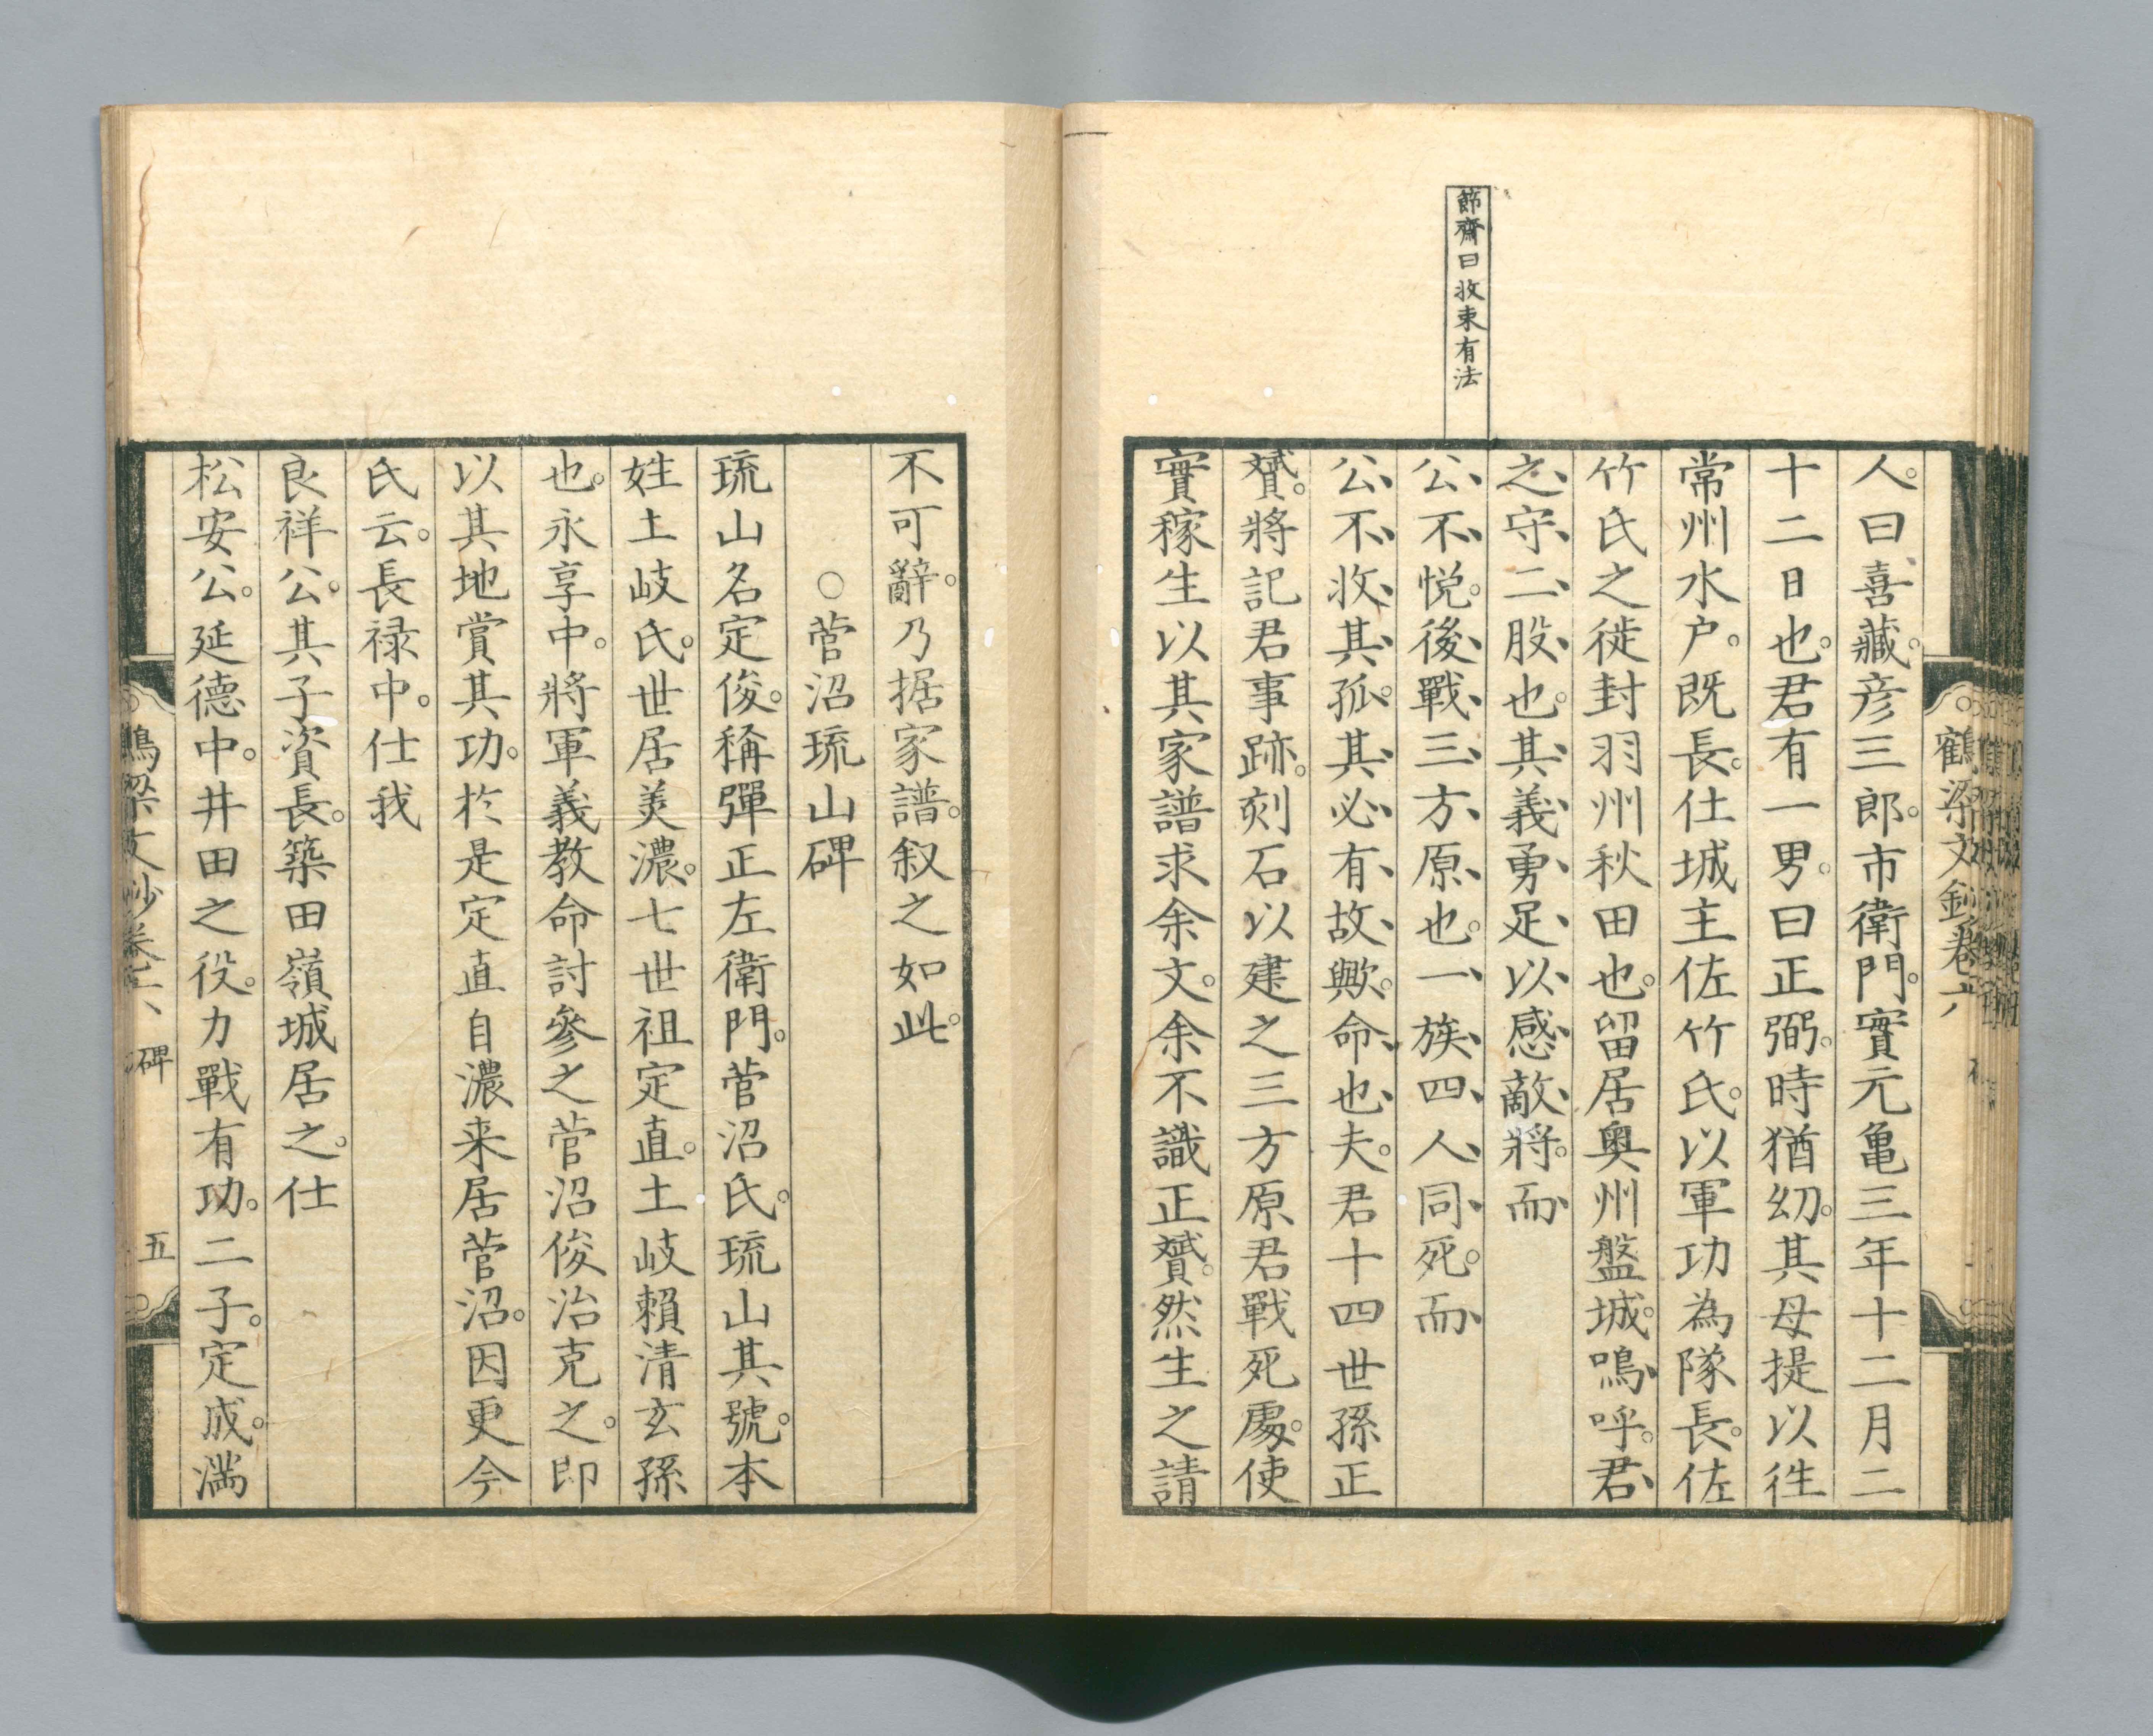 節齋曰收束有法
人。曰喜藏。彦三郎。市衛門。實元亀三年十二月二
十二日也。君有一男。曰正弼。時猶幼。其母提以徃
常州水戸。既長。仕城主佐竹氏。以軍功為隊長。佐
竹氏之徙封羽州秋田也。留居奥州盤城。嗚呼。君
之守二股也。其義勇足以感敵將。而
公不悦。後戰三方原也。一族四人同死。而
公不收其孤。其必有故歟。命也夫。君十四世孫正
贇。將記君事跡。刻石以建之三方原君戰死處。使
實稼生以其家譜求余文。余不識正贇。然生之請
鶴梁文鈔卷六
不可辭。乃据家譜。叙之如此。
○菅沼琉山碑
琉山名定俊。稱彈正左衛門。菅沼氏。琉山其號。本
姓土岐氏。世居美濃。七世祖定直。土岐賴清玄孫
也。永享中。將軍義教命討參之菅沼俊治克之。即
以其地賞其功。於是定直自濃来居菅沼。因更今
氏云。長禄中。仕我
良祥公。其子資長。築田嶺城居之。仕
松安公。延德中。井田之役。力戰有功。二子。定成。満
鶴梁文鈔卷六 碑 五